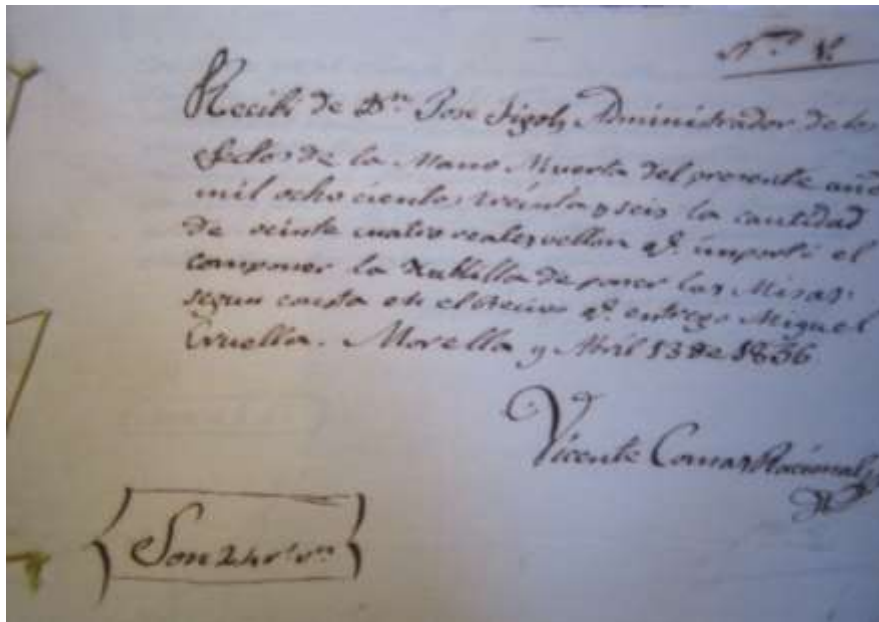 N.º 8.
Recibi de Dn Jose Sigols Administrador de los
fectos de la Mano Muerta del presente año
mil ocho cientos treinta y seis la cantidad
de veinte cuatro reales vellon q.e importó el
componer la tablilla de poner las Misas:
segun consta en el Recivo q.e entrego Miguel
Cruella. Morella y Abril 13 de 1836
Vicente Comas Racional
Son 24 rs vn